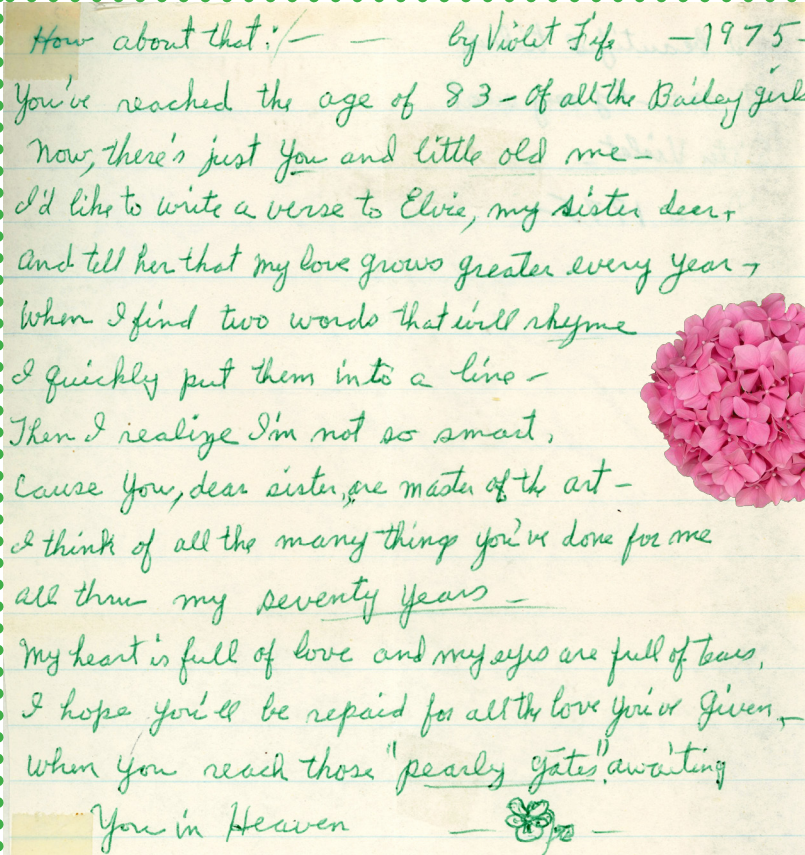 How about that:/— — by Violet Fife — 1975 —
You've reached the age of 83 — Of all the Bailey girls
Now, there's just You and little old me —
I'd like to write a verse to Elvie, my sister dear,
And tell her that my love grows greater every year —,
When I find two words that will rhyme
I quickly put them into a line —
Then I realize I'm not so smart,
Cause You, dear sister, are master of the art —
I think of all the many things you've done for me
all thru my seventy years —
My heart is full of love and my eyes are full of tears,
I hope you'll be repaid for all the love You've Given, —
When You reach those "pearly gates" awaiting
You in Heaven — —